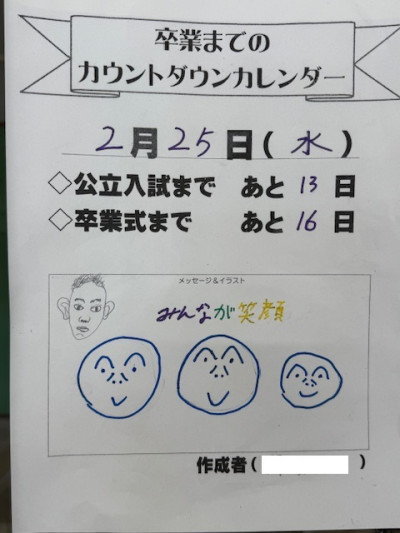 卒業までの
カウントダウンカレンダー
2月25日(水)
◇公立入試まで あと 13 日
◇卒業式まで あと 16 日
メッセージ&イラスト
みんなが笑顔
作成者( )